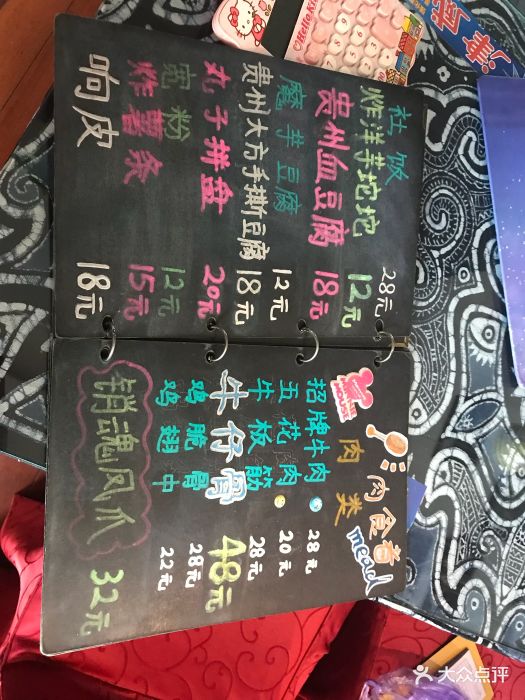 社饭 28元
炸洋芋坨坨 12元
贵州血豆腐 18元
魔芋豆腐 12元
贵州大方手撕豆腐 18元
丸子拼盘 20元
宽粉 12元
炸薯条 15元
响皮 18元
肉食者
mead
肉类
招牌牛肉 28元
五花肉 20元
牛板筋 28元
牛仔骨 48元
鸡脆骨 28元
鸡翅中 22元
销魂凤爪 32元
Hello Kitty
津威
大众点评